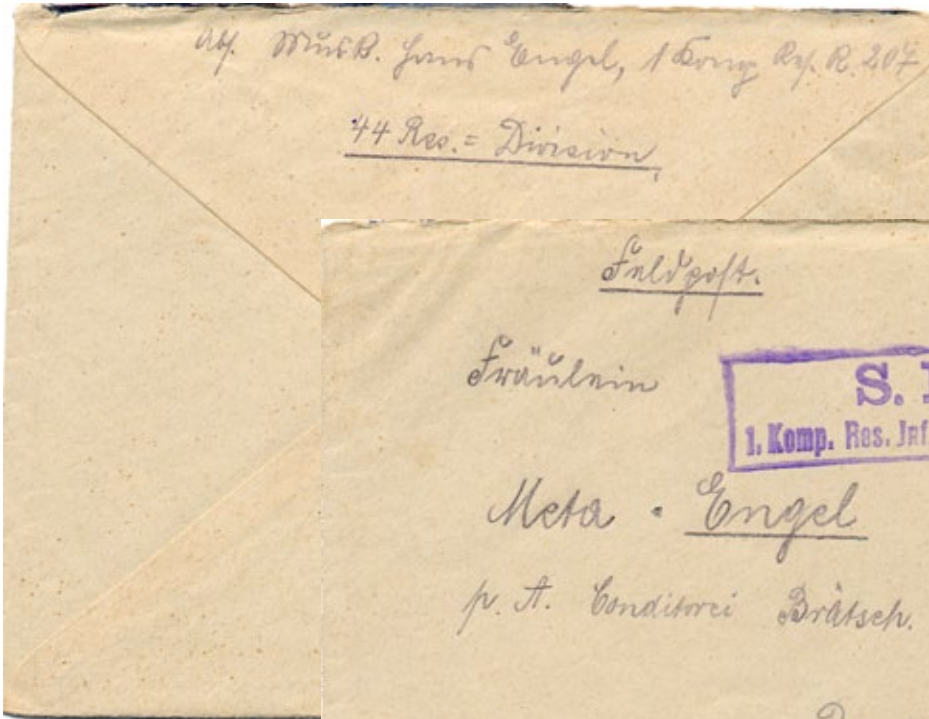 Abs. Musk. Hans Engel, 1 Komp. Res. R. 207
44 Res.= Division,
Feldpost.
Fräulein
S.
1. Komp. Res. Inf
Meta Engel
p. A. Conditorei Brätsch.